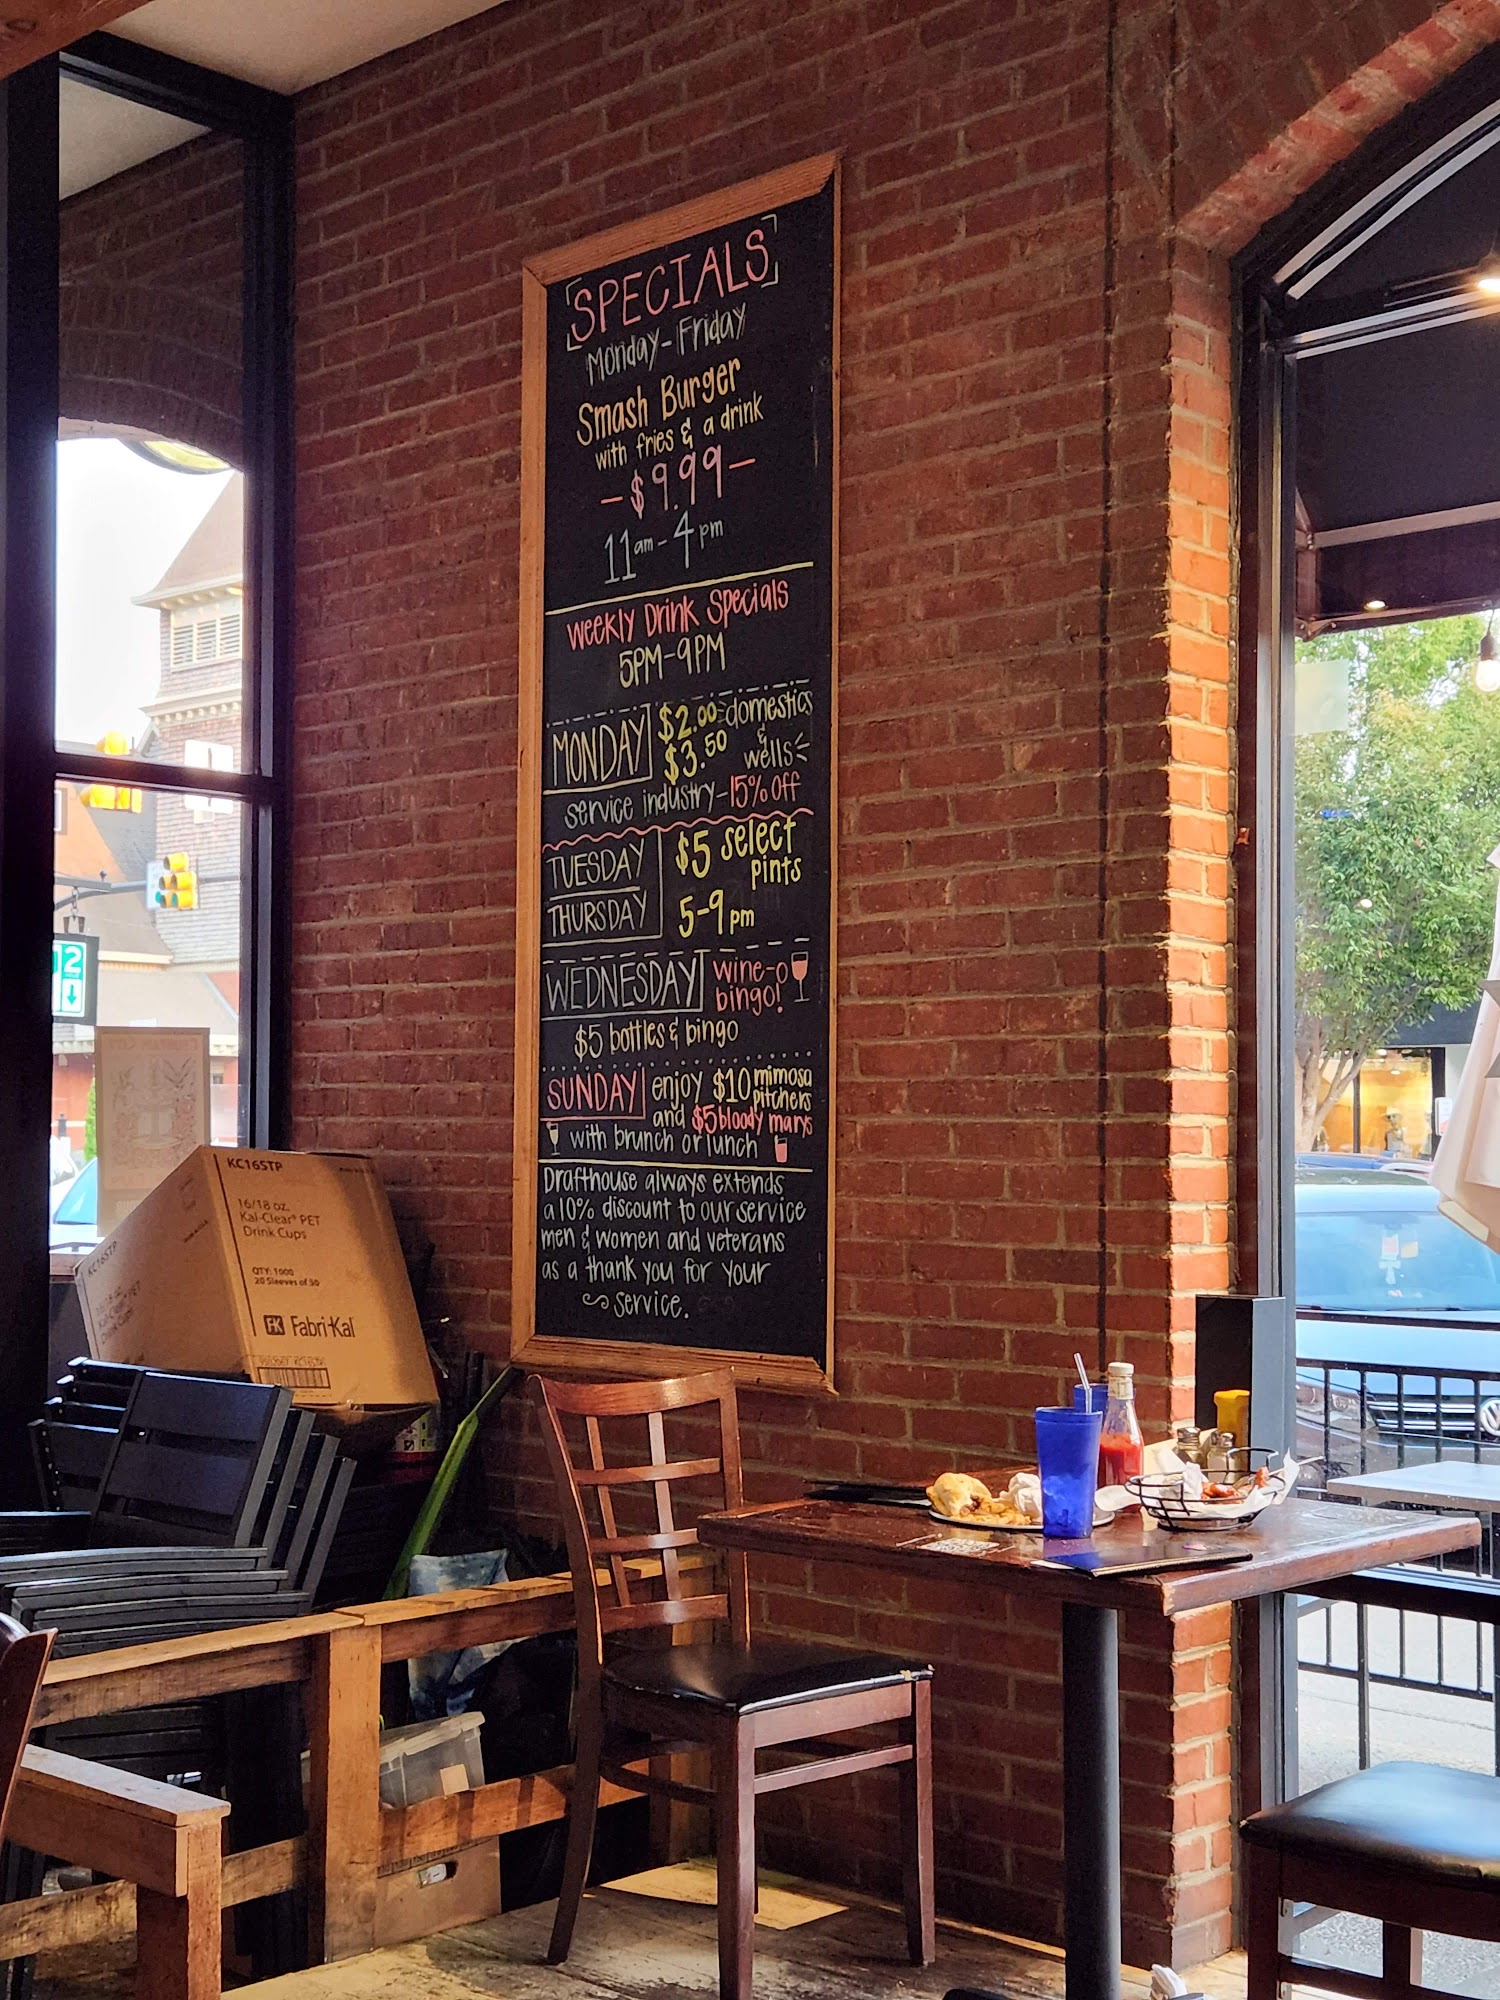 SPECIALS
Monday-Friday
Smash Burger
with fries & a drink
-$9.99-
11am-4pm
Weekly Drink Specials
5PM-9PM
MONDAY $2.00 domestics
&
$3.50 wells
service industry-15% off
TUESDAY
THURSDAY
$5 select
pints
5-9pm
WEDNESDAY wine-o
bingo!
$5 bottles & bingo
SUNDAY enjoy $10 mimosa
pitchers
and $5 bloody marys
with brunch or lunch
Drafthouse always extends
a 10% discount to our service
men & women and veterans
as a thank you for your
service.
KC16STP
16/18 oz.
Kal-Clear® PET
Drink Cups
QTY: 1000
20 Sleeves of 50
FK Fabri-Kal
KC16STP
16/18 oz.
Kal-Clear PET
Drink Cups
2